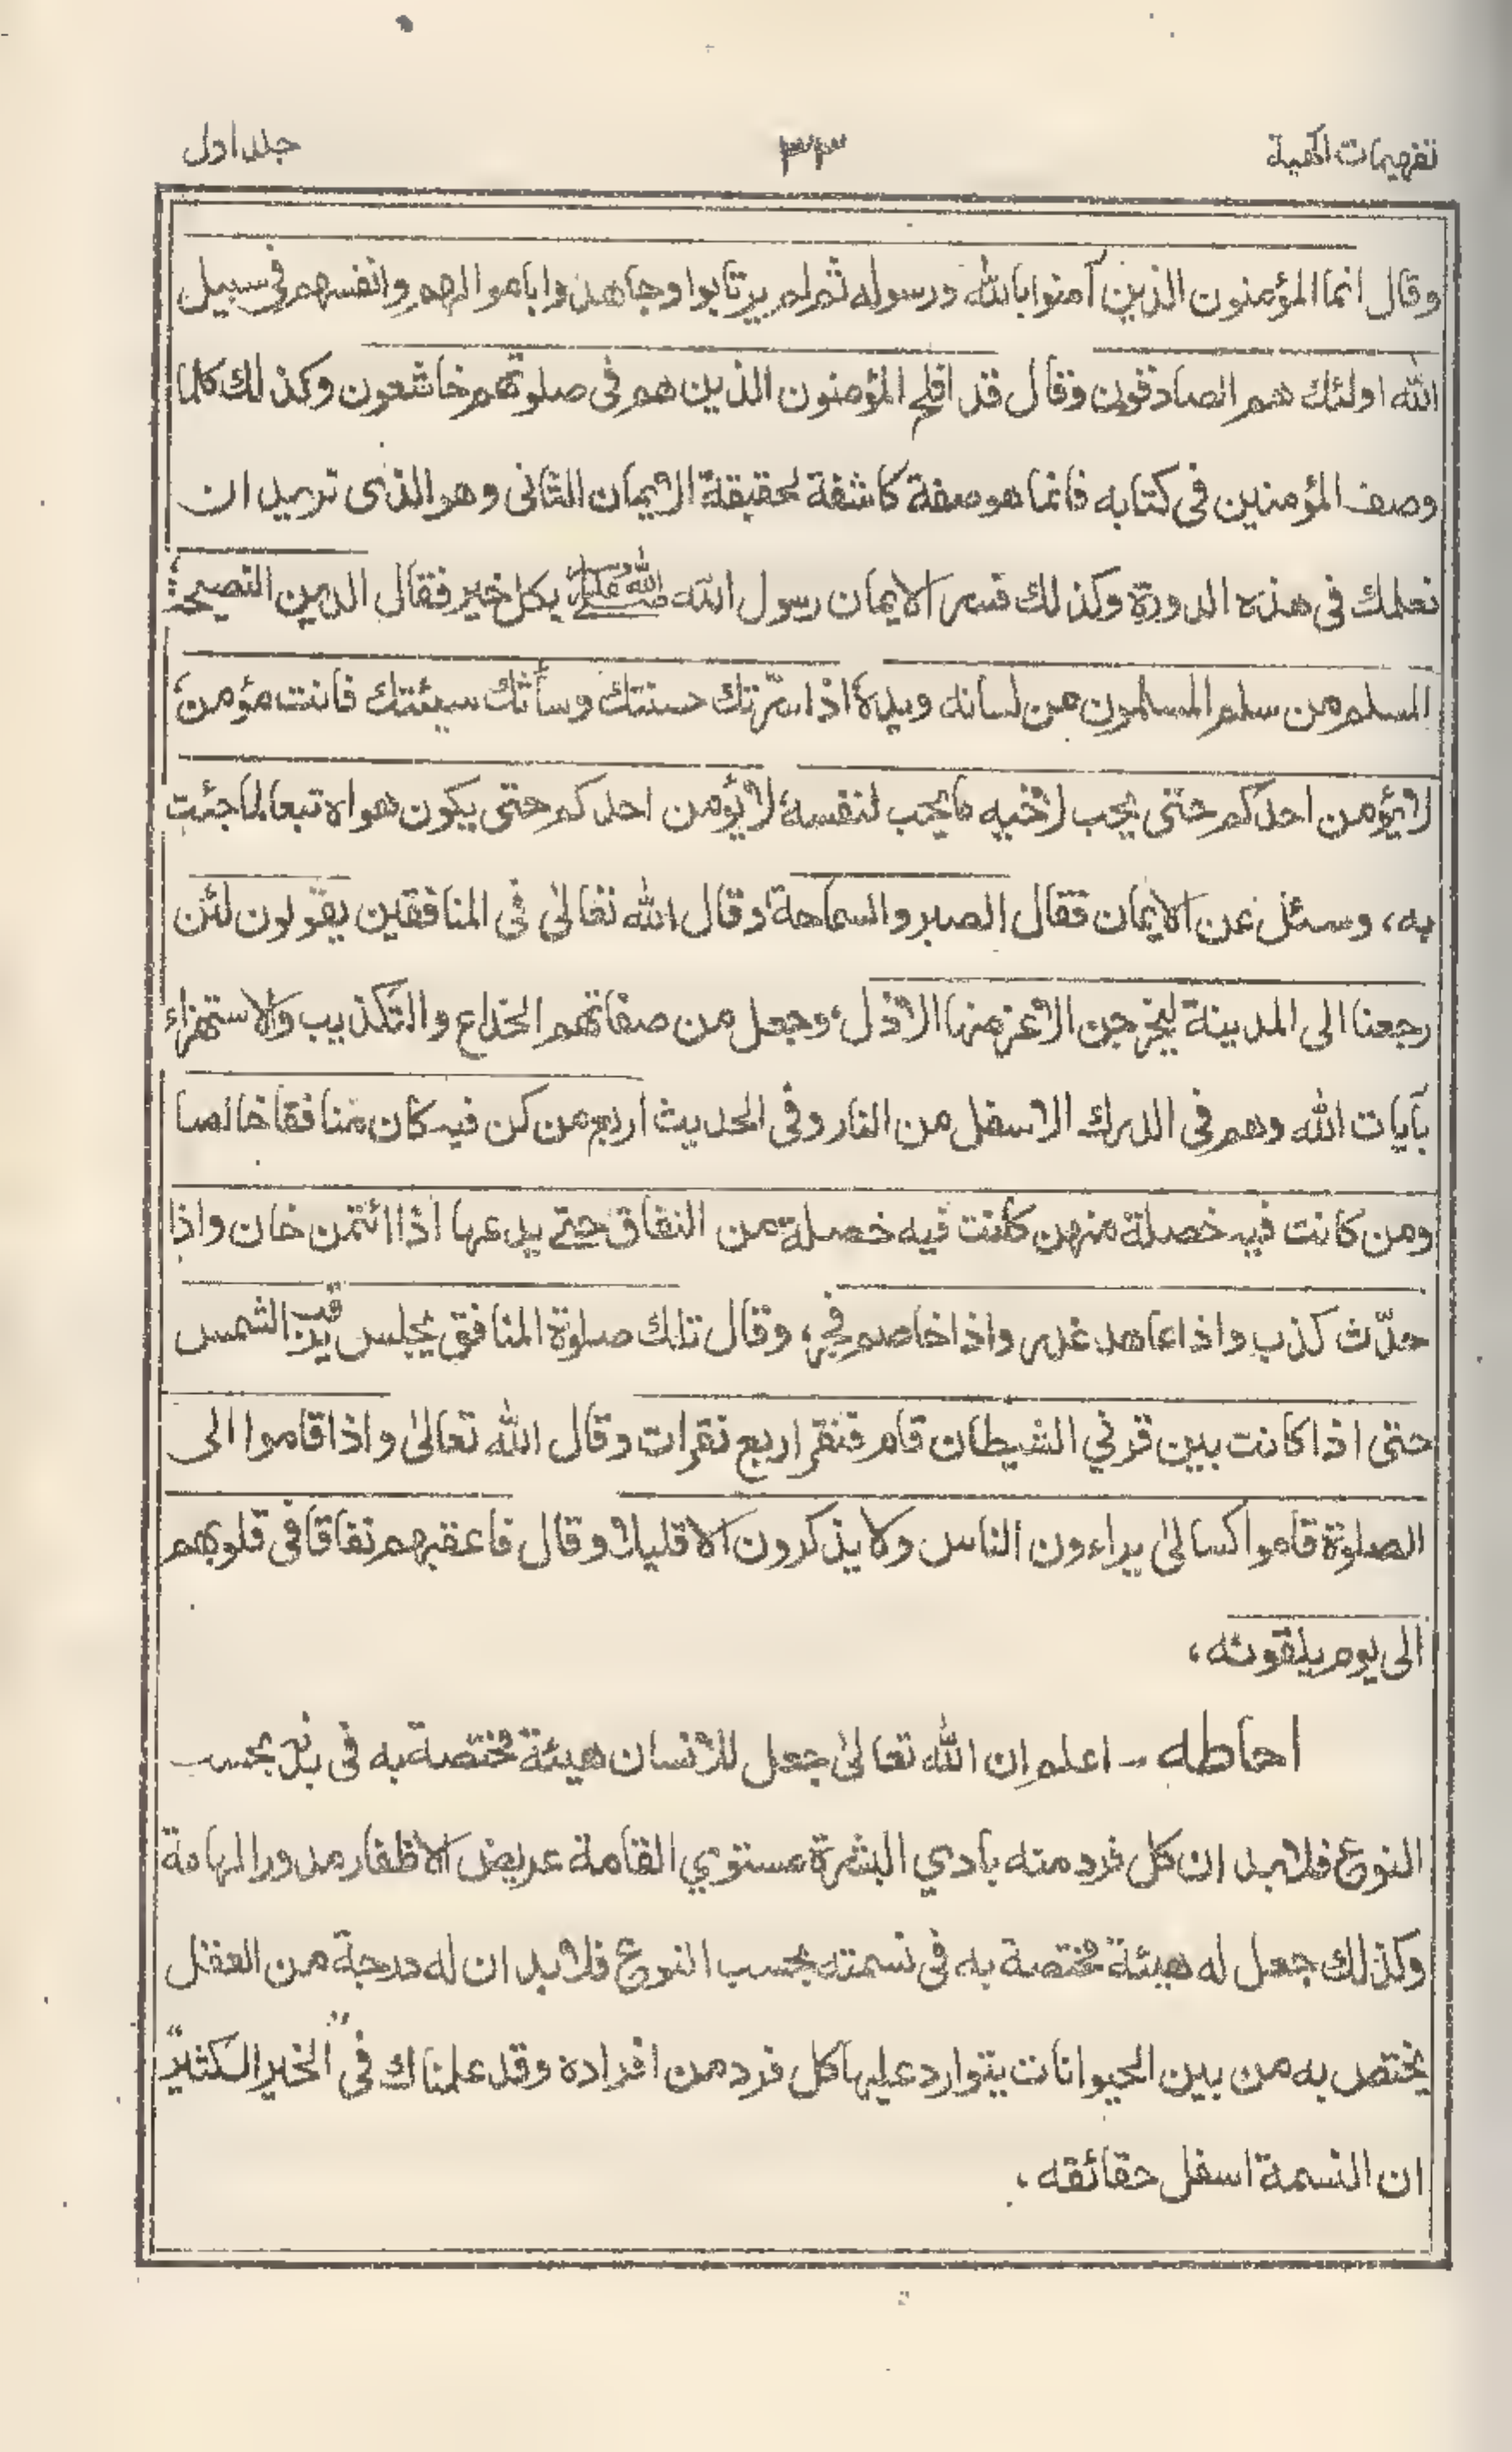 تفهيمات الٰهية ٣٣ جلد اول
وقال انما المؤمنون الذين آمنوا بالله ورسوله ثم لم يرتابوا وجاهدوا باموالهم وانفسهم فى سبيل
الله اولئك هم الصادقون وقال قد افلح المؤمنون الذين هم فى صلوتهم خاشعون وكذلك كلما
وصف المؤمنين فى كتابه فانما هو صفة كاشفة لحقيقة الايمان الثانى وهو الذى نريد ان
نعلمك فى هذه الدورة وكذلك فسر الايمان رسول الله صلى الله عليه وسلم بكل خير فقال الدين النصيحة؛
المسلم من سلم المسلمون من لسانه ويده؛ اذا سرّتك حسنتك وسأتك سيئتك فانت مؤمن؛
لا يؤمن احدكم حتى يحب لاخيه ما يحب لنفسه؛ لا يؤمن احدكم حتى يكون هواه تبعا لما جئت
به، وسئل عن الايمان فقال الصبر والسماحة؛ وقال الله تعالىٰ فى المنافقين يقولون لئن
رجعنا الى المدينة ليخرجن الاعز منها الاذل؛ وجعل من صفاتهم الخداع والتكذيب والاستهزاء
بآيات الله وهم فى الدرك الاسفل من النار وفى الحديث اربع من كن فيه كان منافقا خالصا
ومن كانت فيه خصلة منهن كانت فيه خصلة من النفاق حتے يدعها اذا ائتمن خان واذا
حدّث كذب واذا عاهد غدر واذا خاصم فجر، وقال تلك صلوة المنافق يجلس يرقب الشمس
حتى اذا كانت بين قرني الشيطان قام فنقر اربع نقرات وقال الله تعالىٰ واذا قاموا الى
الصلوٰة قاموا كسالىٰ يراءون الناس ولا يذكرون الا قليلا وقال فاعقبهم نفاقا فى قلوبهم
الى يوم يلقونه،
احاطه ــ اعلم ان الله تعالىٰ جعل للانسان هيئة مختصة به فى بدنه بحسب
النوع فلا بد ان كل فرد منه بادي البشرة مستوي القامة عريض الاظفار مدور الهامة
وكذلك جعل له هيئة مختصة به فى نسمته بحسب النوع فلا بد ان له درجة من العقل
يختص به من بين الحيوانات يتوارد عليها كل فرد من افراده وقد علمناك فى "الخير الكثير"
ان النسمة اسفل حقائقه،